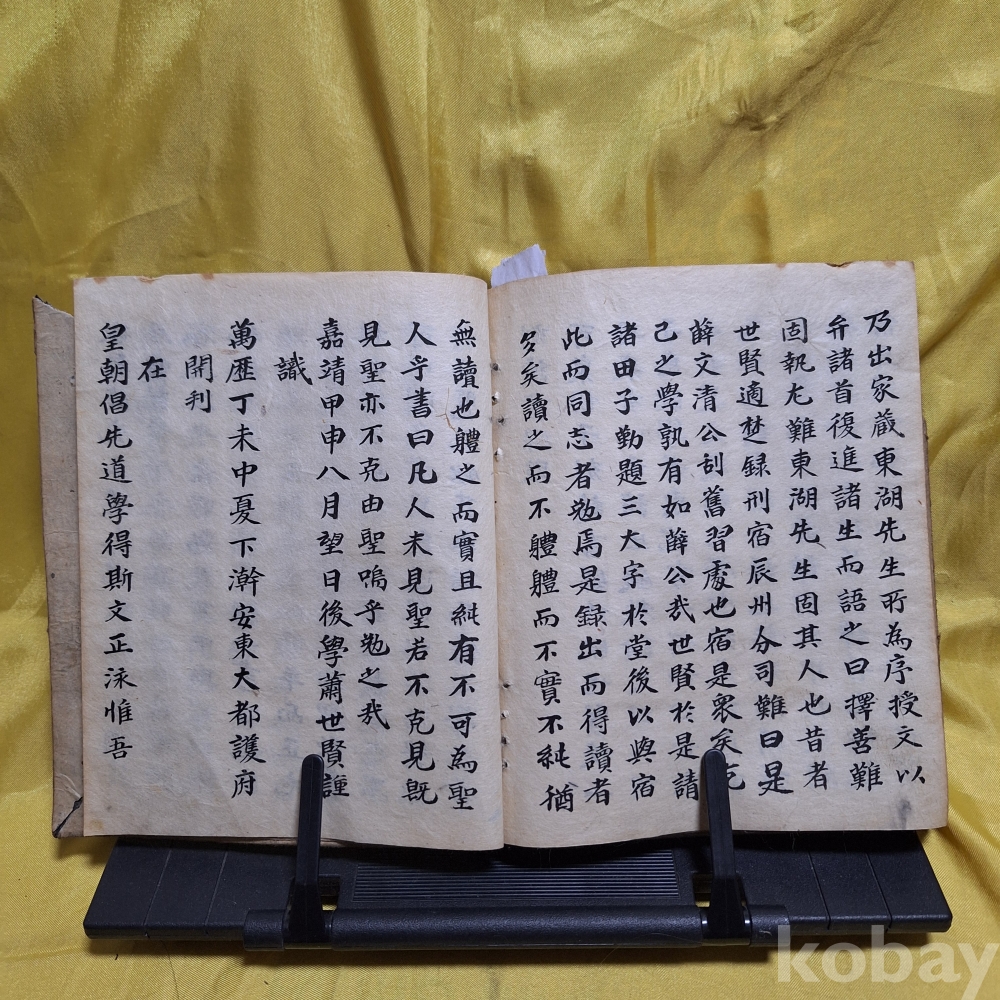 乃出家蔵東湖先生所為序授文以
弁諸首復進諸生而語之曰擇善難
固執尤難東湖先生固其人也昔者
世賢適楚録刑宿辰州分司難曰是
薛文清公刮舊習處也宿是衆矣克
己之學孰有如薛公㢤世賢於是請
諸田子勤題三大字於堂後以與宿
此而同志者勉焉是録出而得讀者
多矣讀之而不軆軆而不實不純猶
無讀也軆之而實且純有不可為聖
人乎書曰凡人未見聖若不克見旣
見聖亦不克由聖嗚乎勉之㢤
嘉靖甲申八月望日後學蕭世賢謹
識
萬歷丁未中夏下澣安東大都護府
開刋
在
皇朝倡先道學得斯文正泳惟吾
kobay